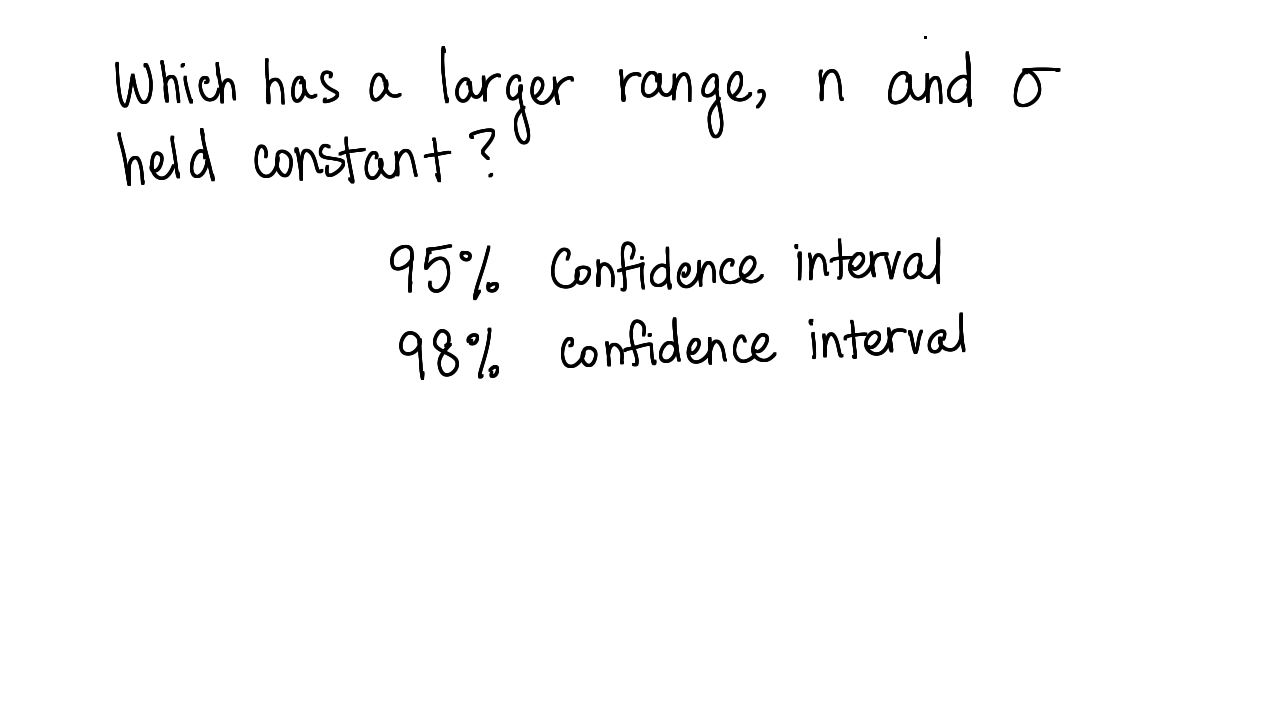 Which has a larger range, n and σ
held constant?
95% Confidence interval
98% confidence interval